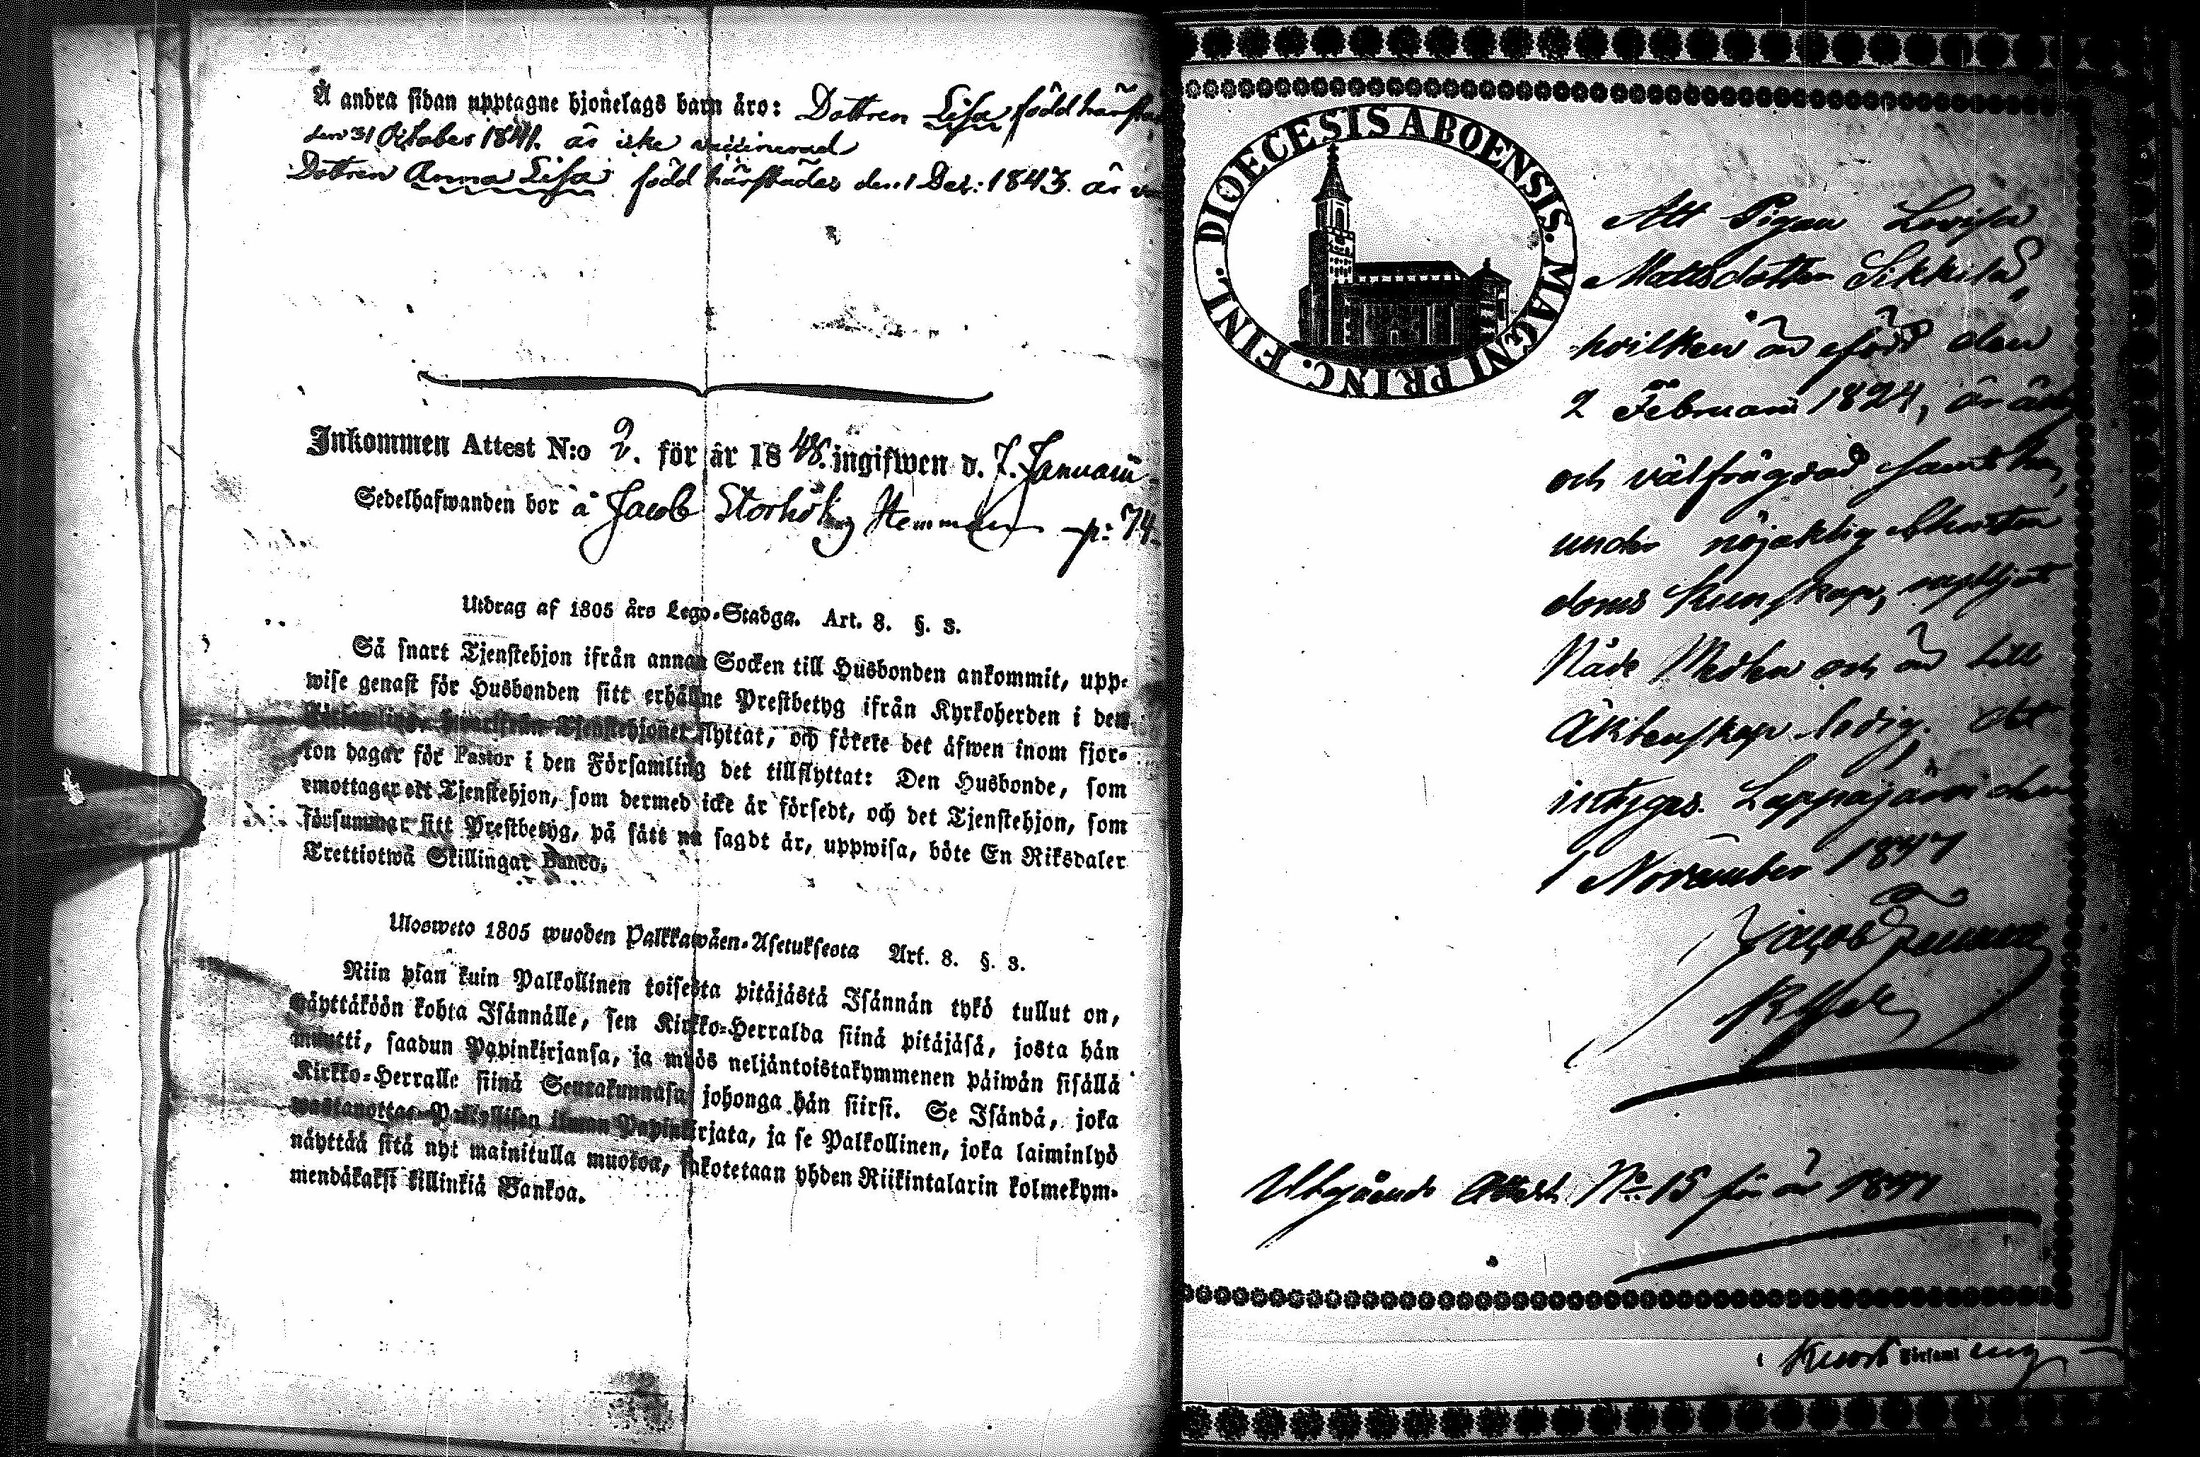 Å andra sidan upptagne hjonelags barn äro: Dottren Lisa född härstä
den 31 October 1841. är icke vaccinerad
Dottren Anna Lisa född härstädes den 1 Dec: 1843. är
Inkommen Attest N:o 2. för år 1848. ingifwen d. 7. Januarii
Sedelhafwanden bor å Jacob Storhök Hemman p: 74.
Utdrag af 1805 års Lego-Stadga. Art. 8. §. 3.
Så snart Tjenstehjon ifrån annan Socken till Husbonden ankommit, upp-
wise genast för Husbonden sitt erhållne Prestbetyg ifrån Kyrkoherden i den
Församling, hwarifrån Tjenstehjonet flyttat, och förete det äfwen inom fjor-
ton dagar för Pastor i den Församling det tillflyttat: Den Husbonde, som
emottager ett Tjenstehjon, som dermed icke är försedt, och det Tjenstehjon, som
försummar sitt Prestbetyg, på sätt nu sagdt är, uppwisa, böte En Riksdaler
Trettiotwå Skillingar Banco.
Ulosweto 1805 wuoden Palkkawäen-Asetuksesta Art. 8. §. 3.
Niin pian kuin Palkollinen toisesta pitäjästä Isännän tykö tullut on,
näyttäköön kohta Isännälle, sen Kirkko-Herralda siinä pitäjäsä, josta hän
muutti, saadun Papinkirjansa, ja myös neljäntoistakymmenen päiwän sisällä
Kirkko-Herralle siinä Seurakunnasa johonga hän siirsi. Se Isändä, joka
wastanottaa Palkollisen ilman Papinkirjata, ja se Palkollinen, joka laiminlyö
näyttää sitä nyt mainitulla muotoa, sakotetaan yhden Riikintalarin kolmekym-
mendäkaksi killinkiä Bankoa.
DIOECESIS ABOENSIS. MAGNI PRINC. FINL.
Att Pigan Lovisa
Mattsdotter Sikkilä,
hvilken är född den
2 Februarii 1824, är
och välfrägdad samt har,
under nöjaktig Christen
doms kunskap, nyttjat
Nåde Medlen och är till
Äktenskap ledig. det
intygas. Lappajärvi den
1 November 1847
Jacob
Utgående Attest No 15 för år 1847